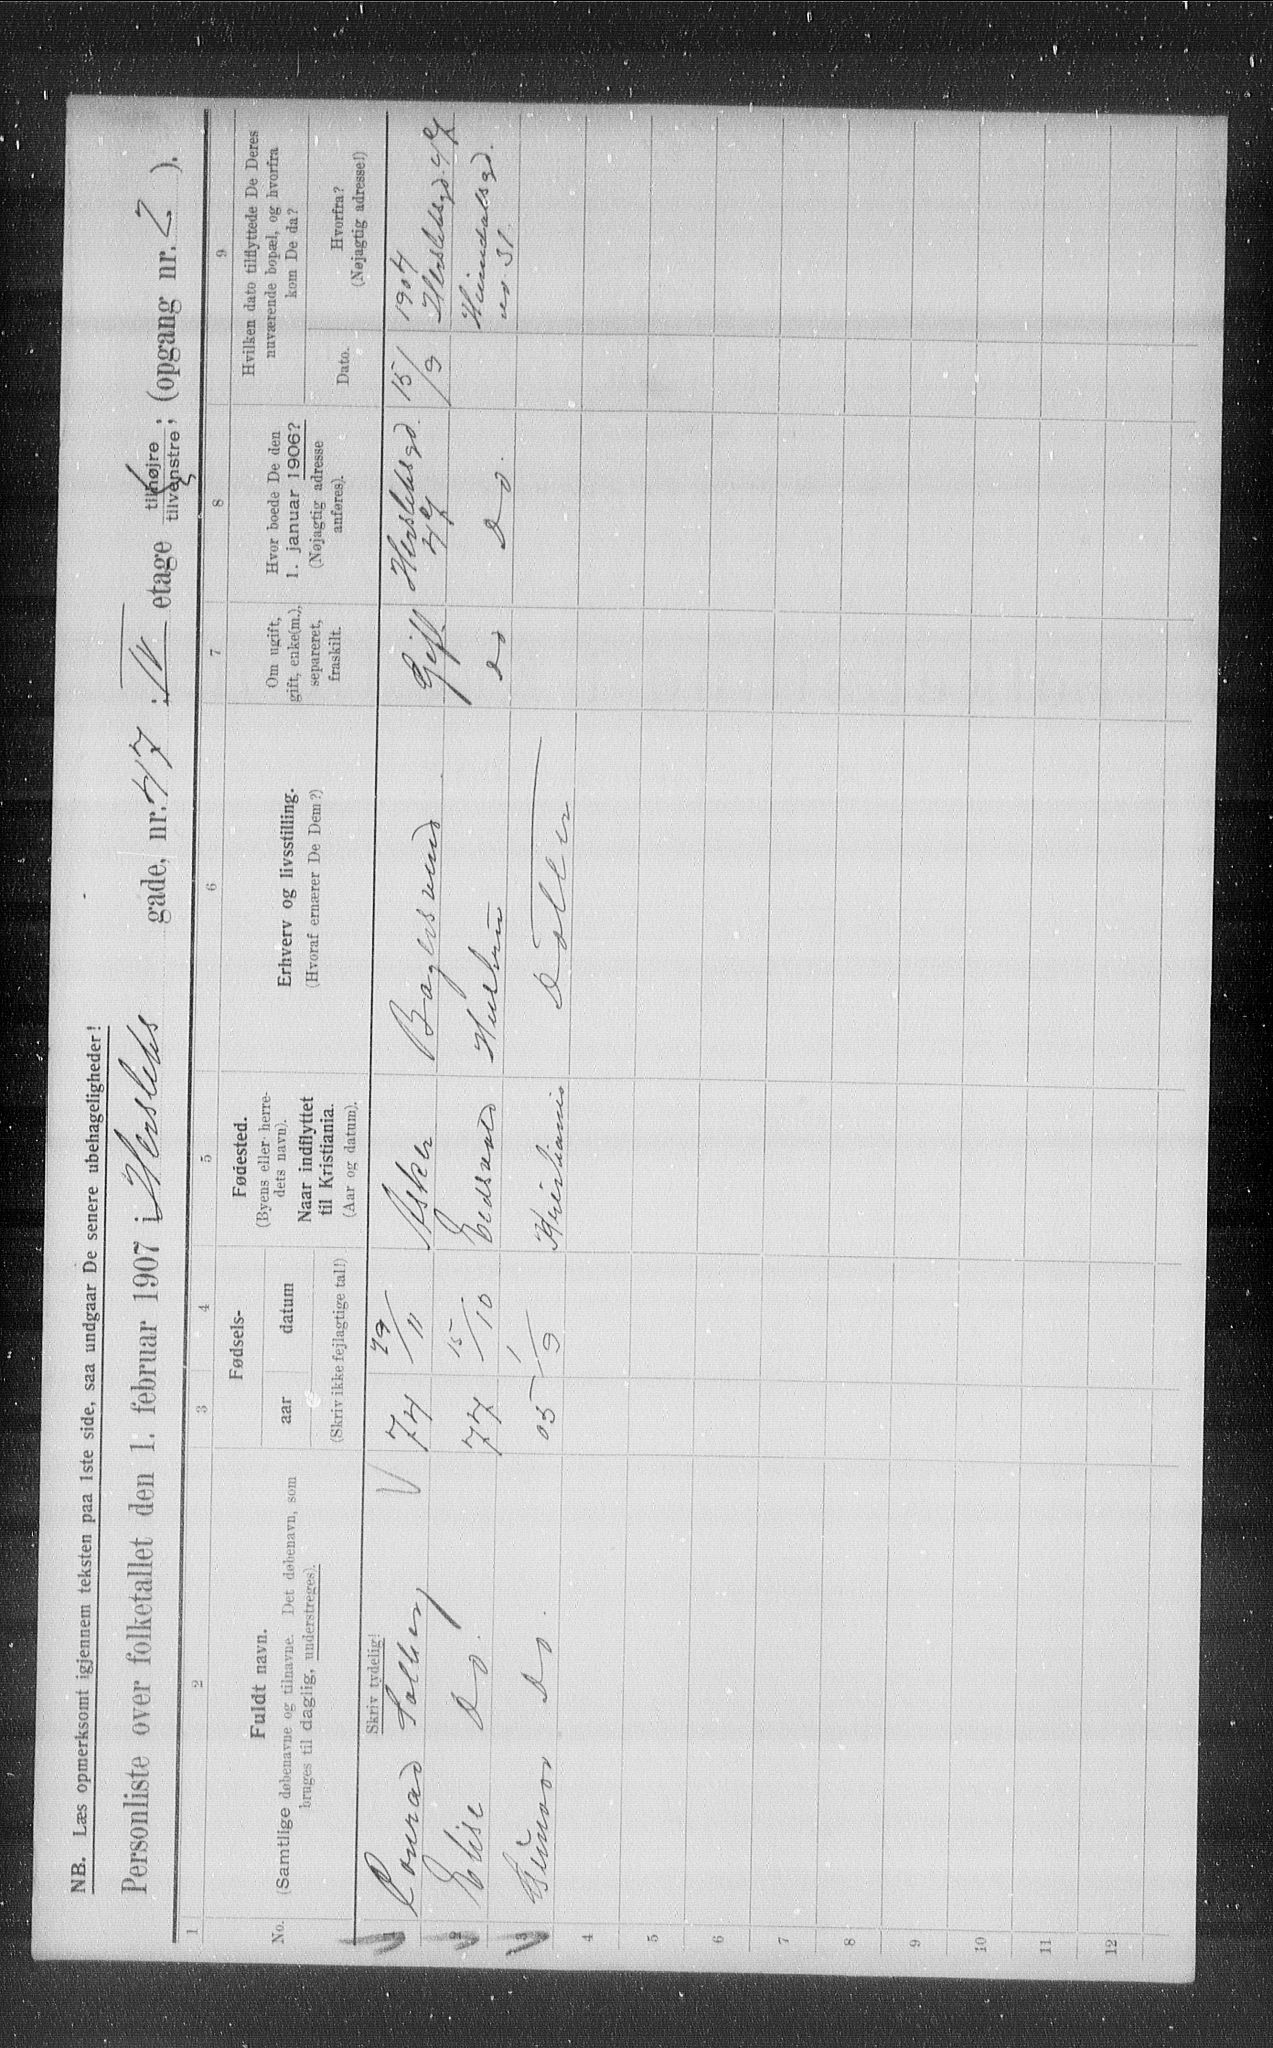 NB. Læs opmerksomt igjennem teksten paa 1ste side, saa undgaar De senere ubehageligheder!
Personliste over folketallet den 1. februar 1907 i Herslebs gade, nr. 47 ; IV etage tilhøjre tilvenstre; (opgang nr. 2 ).
1 2 3 4 5 6 7 8 9
No.
Fuldt navn.
(Samtlige døbenavne og tilnavne. Det døbenavn, som
bruges til daglig, understreges).
Fødsels-
aar datum
(Skriv ikke fejlagtige tal!)
Fødested.
(Byens eller herre-
dets navn).
Naar indflyttet
til Kristiania.
(Aar og datum).
Erhverv og livsstilling.
(Hvoraf ernærer De Dem?)
Om ugift,
gift, enke(m.),
separeret,
fraskilt.
Hvor boede De den
1. januar 1906?
(Nøjagtig adresse
anføres).
Hvilken dato tilflyttede De Deres
nuværende bopæl, og hvorfra
kom De da?
Dato.
Hvorfra?
(Nøjagtig adresse!)
Skriv tydelig!
1 Conrad Solberg 74 29/11 Asker Bagersvend Gift Herslebsgd. 47 15/9 1904 Herslebsgd. 47
2 Elise Do. 77 15/10 Eidsvold Hustru do Do.
Heimdalsgd.
no. 31.
3 Gunvor Do. 05 1/9 Kristiania Datter
4
5
6
7
8
9
10
11
12